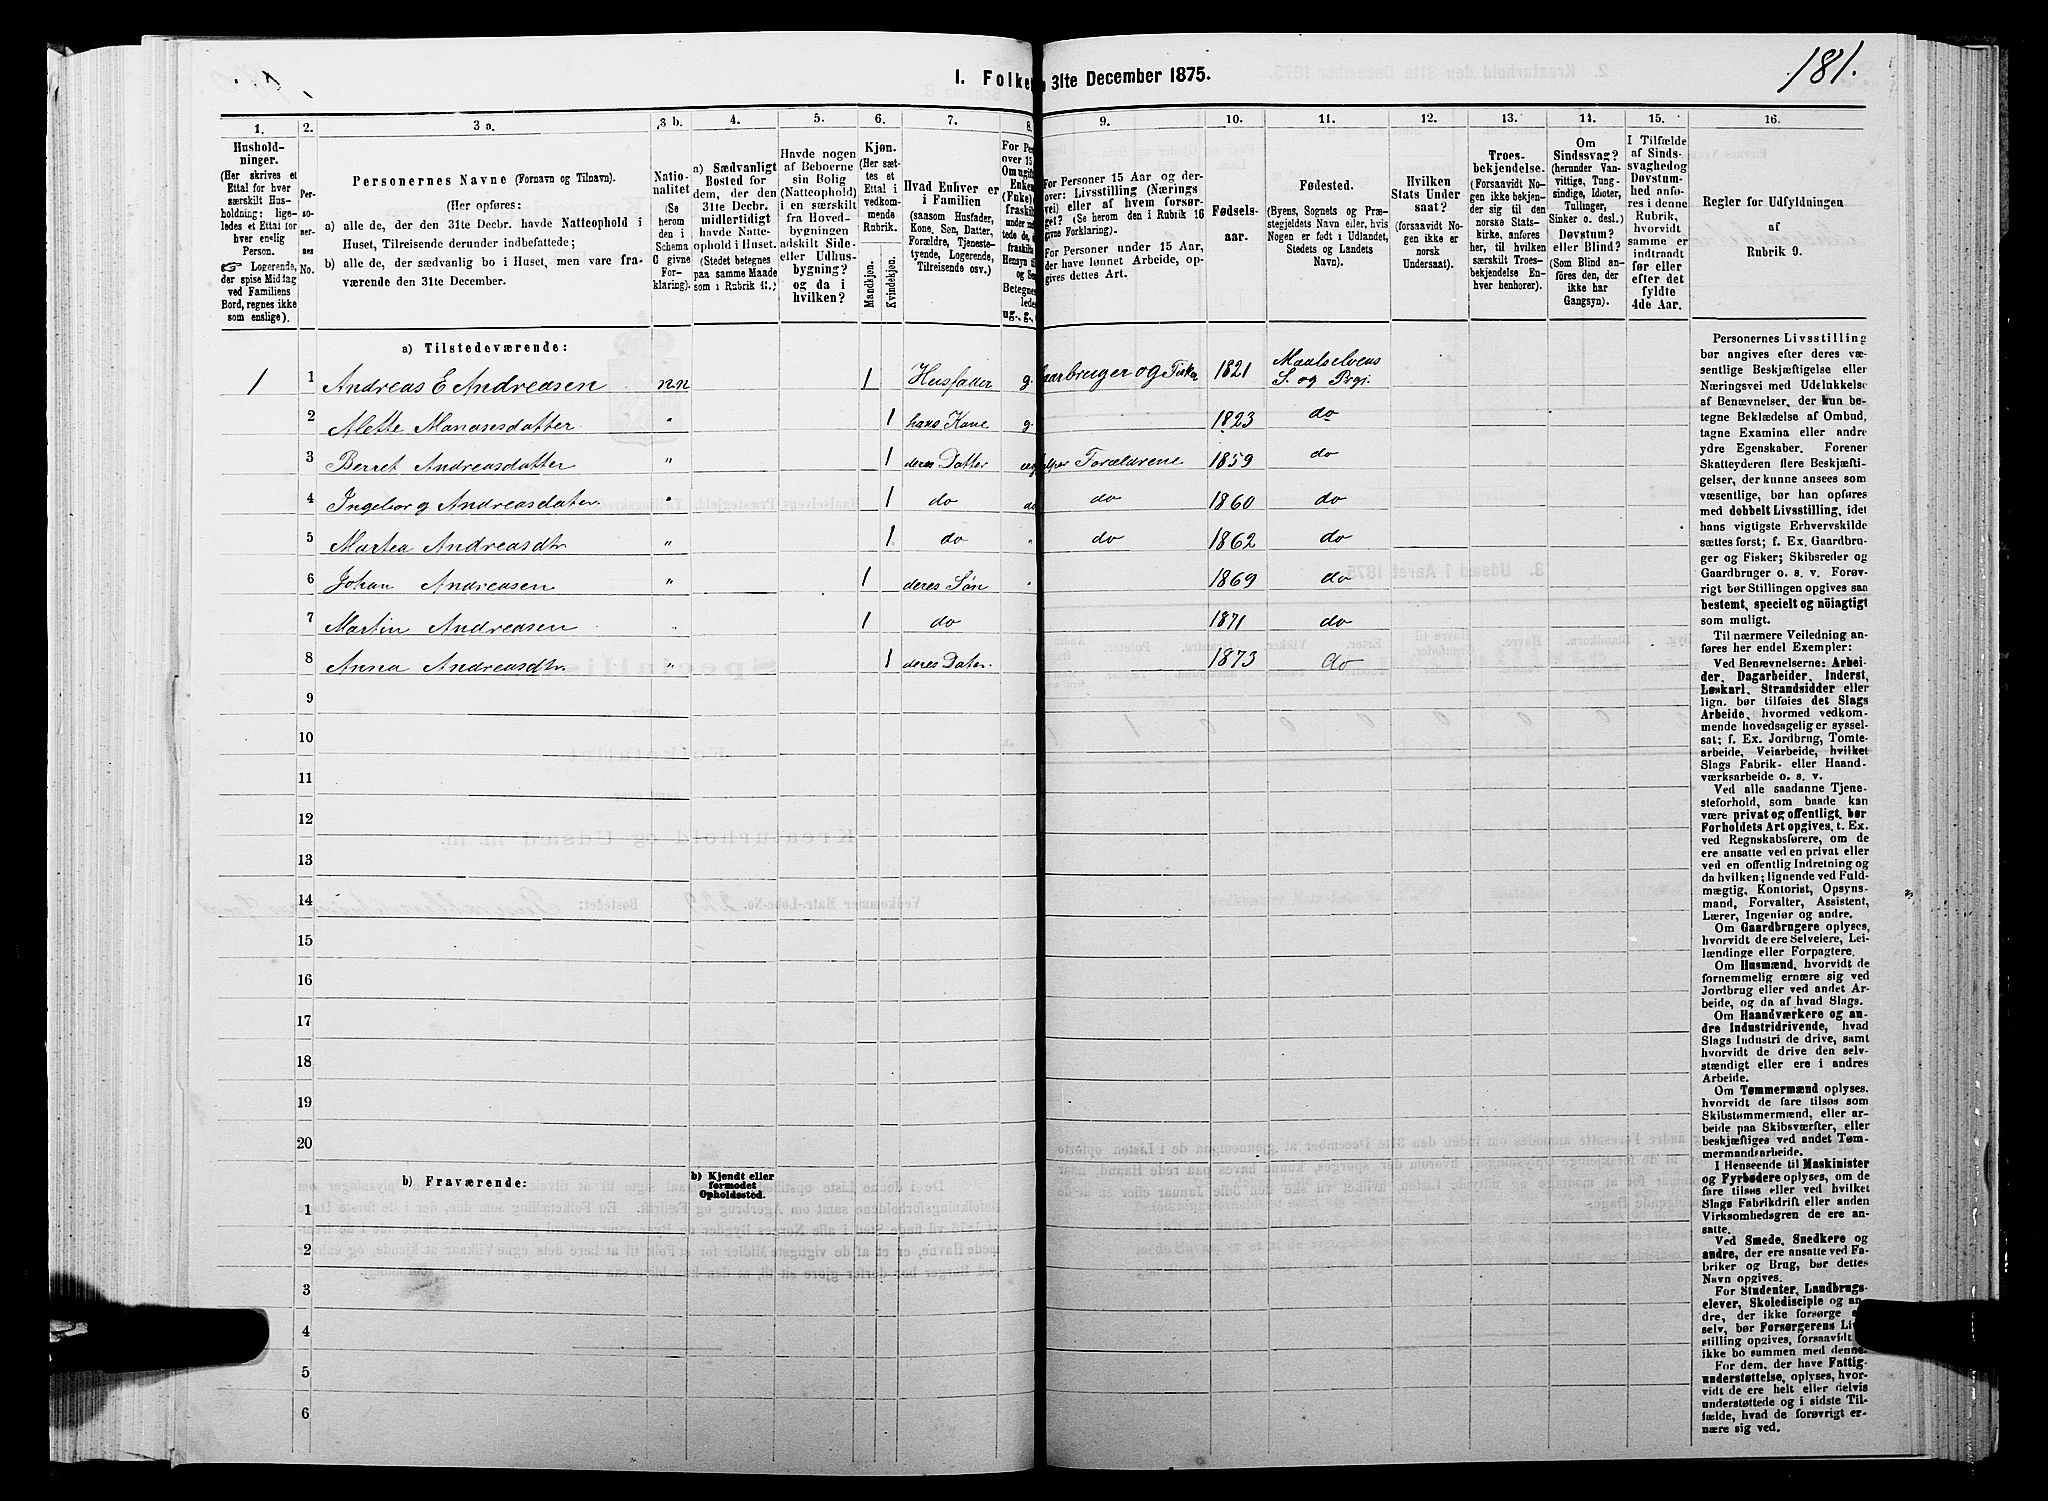 181.
I. Folke
n 31te December 1875.
1.
2.
3 a.
3 b.
4.
5.
6.
7.
8.
9.
10.
11.
12.
13.
14.
15.
16.
Hushold-
ninger.
(Her skrives et
Ettal for hver
særskilt Hus-
holdning; lige-
ledes et Ettal for
hver enslig
Person.
☞ Logerende,
der spise Middag
ved Familiens
Bord, regnes ikke
som enslige).
Per-
so-
ner-
nes
No.
Personernes Navne (Fornavn og Tilnavn).
(Her opføres:
a) alle de, der den 31te Decbr. havde Natteophold i
Huset, Tilreisende derunder indbefattede;
b) alle de, der sædvanlig bo i Huset, men vare fra-
værende den 31te December.
Natio-
nalitet
(Se
herom
den i
Schema
C givne
For-
klaring).
a) Sædvanligt
Bosted for
dem, der den
31te Decbr.
midlertidigt
havde Natte-
ophold i Huset.
(Stedet betegnes
paa samme Maade
som i Rubrik 11.)
Havde nogen
af Beboerne
sin Bolig
(Natteophold)
i en særskilt
fra Hoved-
bygningen
adskilt Side-
eller Udhus-
bygning?
og da i
hvilken?
Kjøn.
(Her sæt-
tes et
Ettal i
vedkom-
mende
Rubrik.
Mandkjøn.
Kvindekjøn.
Hvad Enhver er
i Familien
(saasom Husfader,
Kone, Søn, Datter,
Forældre, Tjeneste-
tyende, Logerende,
Tilreisende osv.)
For Per
over 15
Om ugift
Enken
(Fuke)
fraskilt
under ind
tede de, s
fraskilte
Hensyn til
og Se
Betegnes
ledes
ug., g.,
For Personer 15 Aar og der-
over: Livsstilling (Nærings-
vei) eller af hvem forsør-
get? (Se herom den i Rubrik 16
givne Forklaring).
For Personer under 15 Aar,
der have lønnet Arbeide, op-
gives dettes Art.
Fødsels-
aar.
Fødested.
(Byens, Sognets og Præ-
stegjeldets Navn eller, hvis
Nogen er født i Udlandet,
Stedets og Landets
Navn).
Hvilken
Stats Under
saat?
(forsaavidt No-
gen ikke er
norsk
Undersaat).
Troes-
bekjendelse.
(Forsaavidt No-
gen ikke bekjen-
der sig til den
norske Stats-
kirke, anføres
her, til hvilken
særskilt Troes-
bekjendelse En-
hver henhører).
Om
Sindssvag?
(herunder Van-
vittige, Tung-
sindige, Idioter,
Tullinger,
Sinker o. desl.)
Døvstum?
eller Blind?
(Som Blind an-
føres den, der
ikke har
Gangsyn).
I Tilfælde
af Sinds-
svaghedog
Døvstum-
hed anfø-
res i denne
Rubrik,
hvorvidt
samme er
indtraadt
før eller
efter det
fyldte
4de Aar.
Regler for Udfyldningen
af
Rubrik 9.
a) Tilstedeværende:
1 1 Andreas E Andreasen n.n 1 Husfader g. Gaarbruger og Fisker 1821 Maalselvens S. og Prgj.
2 Alette Manasesdatter " 1 hans Kone g. 1823 do
3 Berret Andreasdatter " 1 deres Datter ug hjelper Forældrene 1859 do
4 Ingeborg Andreasdater. " 1 do do do 1860 do
5 Martea Andreasdtr " 1 do " do 1862 do
6 Johan Andreasen " 1 deres Søn " 1869 do
7 Martin Andreasen " 1 do 1871 do
8 Anna Andreasdtr. " 1 deres Dater. 1873 do
9
10
11
12
13
14
15
16
17
18
19
20
b) Fraværende:
b) Kjendt eller
formodet
Opholdssted.
1
2
3
4
5
6
Personernes Livsstilling
bør angives efter deres væ-
sentlige Beskjæftigelse eller
Næringsvei med Udelukkelse
af Benævnelser, der kun be-
tegne Beklædelse af Ombud,
tagne Examina eller andre
ydre Egenskaber. Forener
Skatteyderen flere Beskjæfti-
gelser, der kunne ansees som
væsentlige, bør han opføres
med dobbelt Livsstilling, idet
hans vigtigste Erhvervskilde
sættes først; f. Ex. Gaardbru-
ger og Fisker; Skibsreder og
Gaardbruger o. s. v. Forøv-
rigt bør Stillingen opgives saa
bestemt, specielt og nöiagtigt
som muligt.
Til nærmere Veiledning an-
føres her endel Exempler:
Ved Benævnelserne: Arbei-
der, Dagarbeider, Inderst,
Løskarl, Strandsidder eller
lign. bør tilføies det Slags
Arbeide, hvormed vedkom-
mende hovedsagelig er syssel-
sat; f. Ex. Jordbrug, Tomte-
arbeide, Veiarbeide, hvilket
Slags Fabrik- eller Haand-
værksarbeide o. s. v.
Ved alle saadanne Tjene-
steforhold, som baade kan
være privat og offentligt, bør
Forholdets Art opgives, t. Ex.
ved Regnskabsførere, om de
ere ansatte ved en privat eller
ved en offentlig Indretning og
da hvilken; lignende ved Fuld-
mægtig, Kontorist, Opsyns-
mand, Forvalter, Assistent,
Lærer, Ingeniør og andre.
Om Gaardbrugere oplyses,
hvorvidt de ere Selveiere, Lei-
lændinge eller Forpagtere.
Om Husmænd, hvorvidt de
fornemmelig ernære sig ved
Jordbrug eller ved andet Ar-
beide, og da af hvad Slags.
Om Haandværkere og an-
dre Industridrivende, hvad
Slags Industri de drive, samt
hvorvidt de drive den selv-
stændigt eller ere i andres
Arbeide.
Om Tømmermænd oplyses,
hvorvidt de fare tilsøs som
Skibstømmermænd, eller ar-
beide paa Skibsværfter, eller
beskjæftiges ved andet Tøm-
mermandsarbeide.
I Henseende til Maskinister
og Fyrbødere oplyses, om de
fare tilsøs eller ved hvilket
Slags Fabrikdrift eller anden
Virksomhedsgren de ere an-
satte.
Ved Smede, Snedkere og
andre, der ere ansatte ved Fa-
briker og Brug, bør dettes
Navn opgives.
For Studenter, Landbrugs-
elever, Skoledisciple og an-
dre, der ikke forsørge
selv, bør Forsørgerens
stilling opgives, forsaavidt
ikke bo sammen med denne.
For dem, der have Fattig-
understøttelse, oplyses, hvor-
vidt de ere helt eller delvis
understøttede og i sidste Til-
fælde, hvad de forøvrigt er-
nære sig ved.